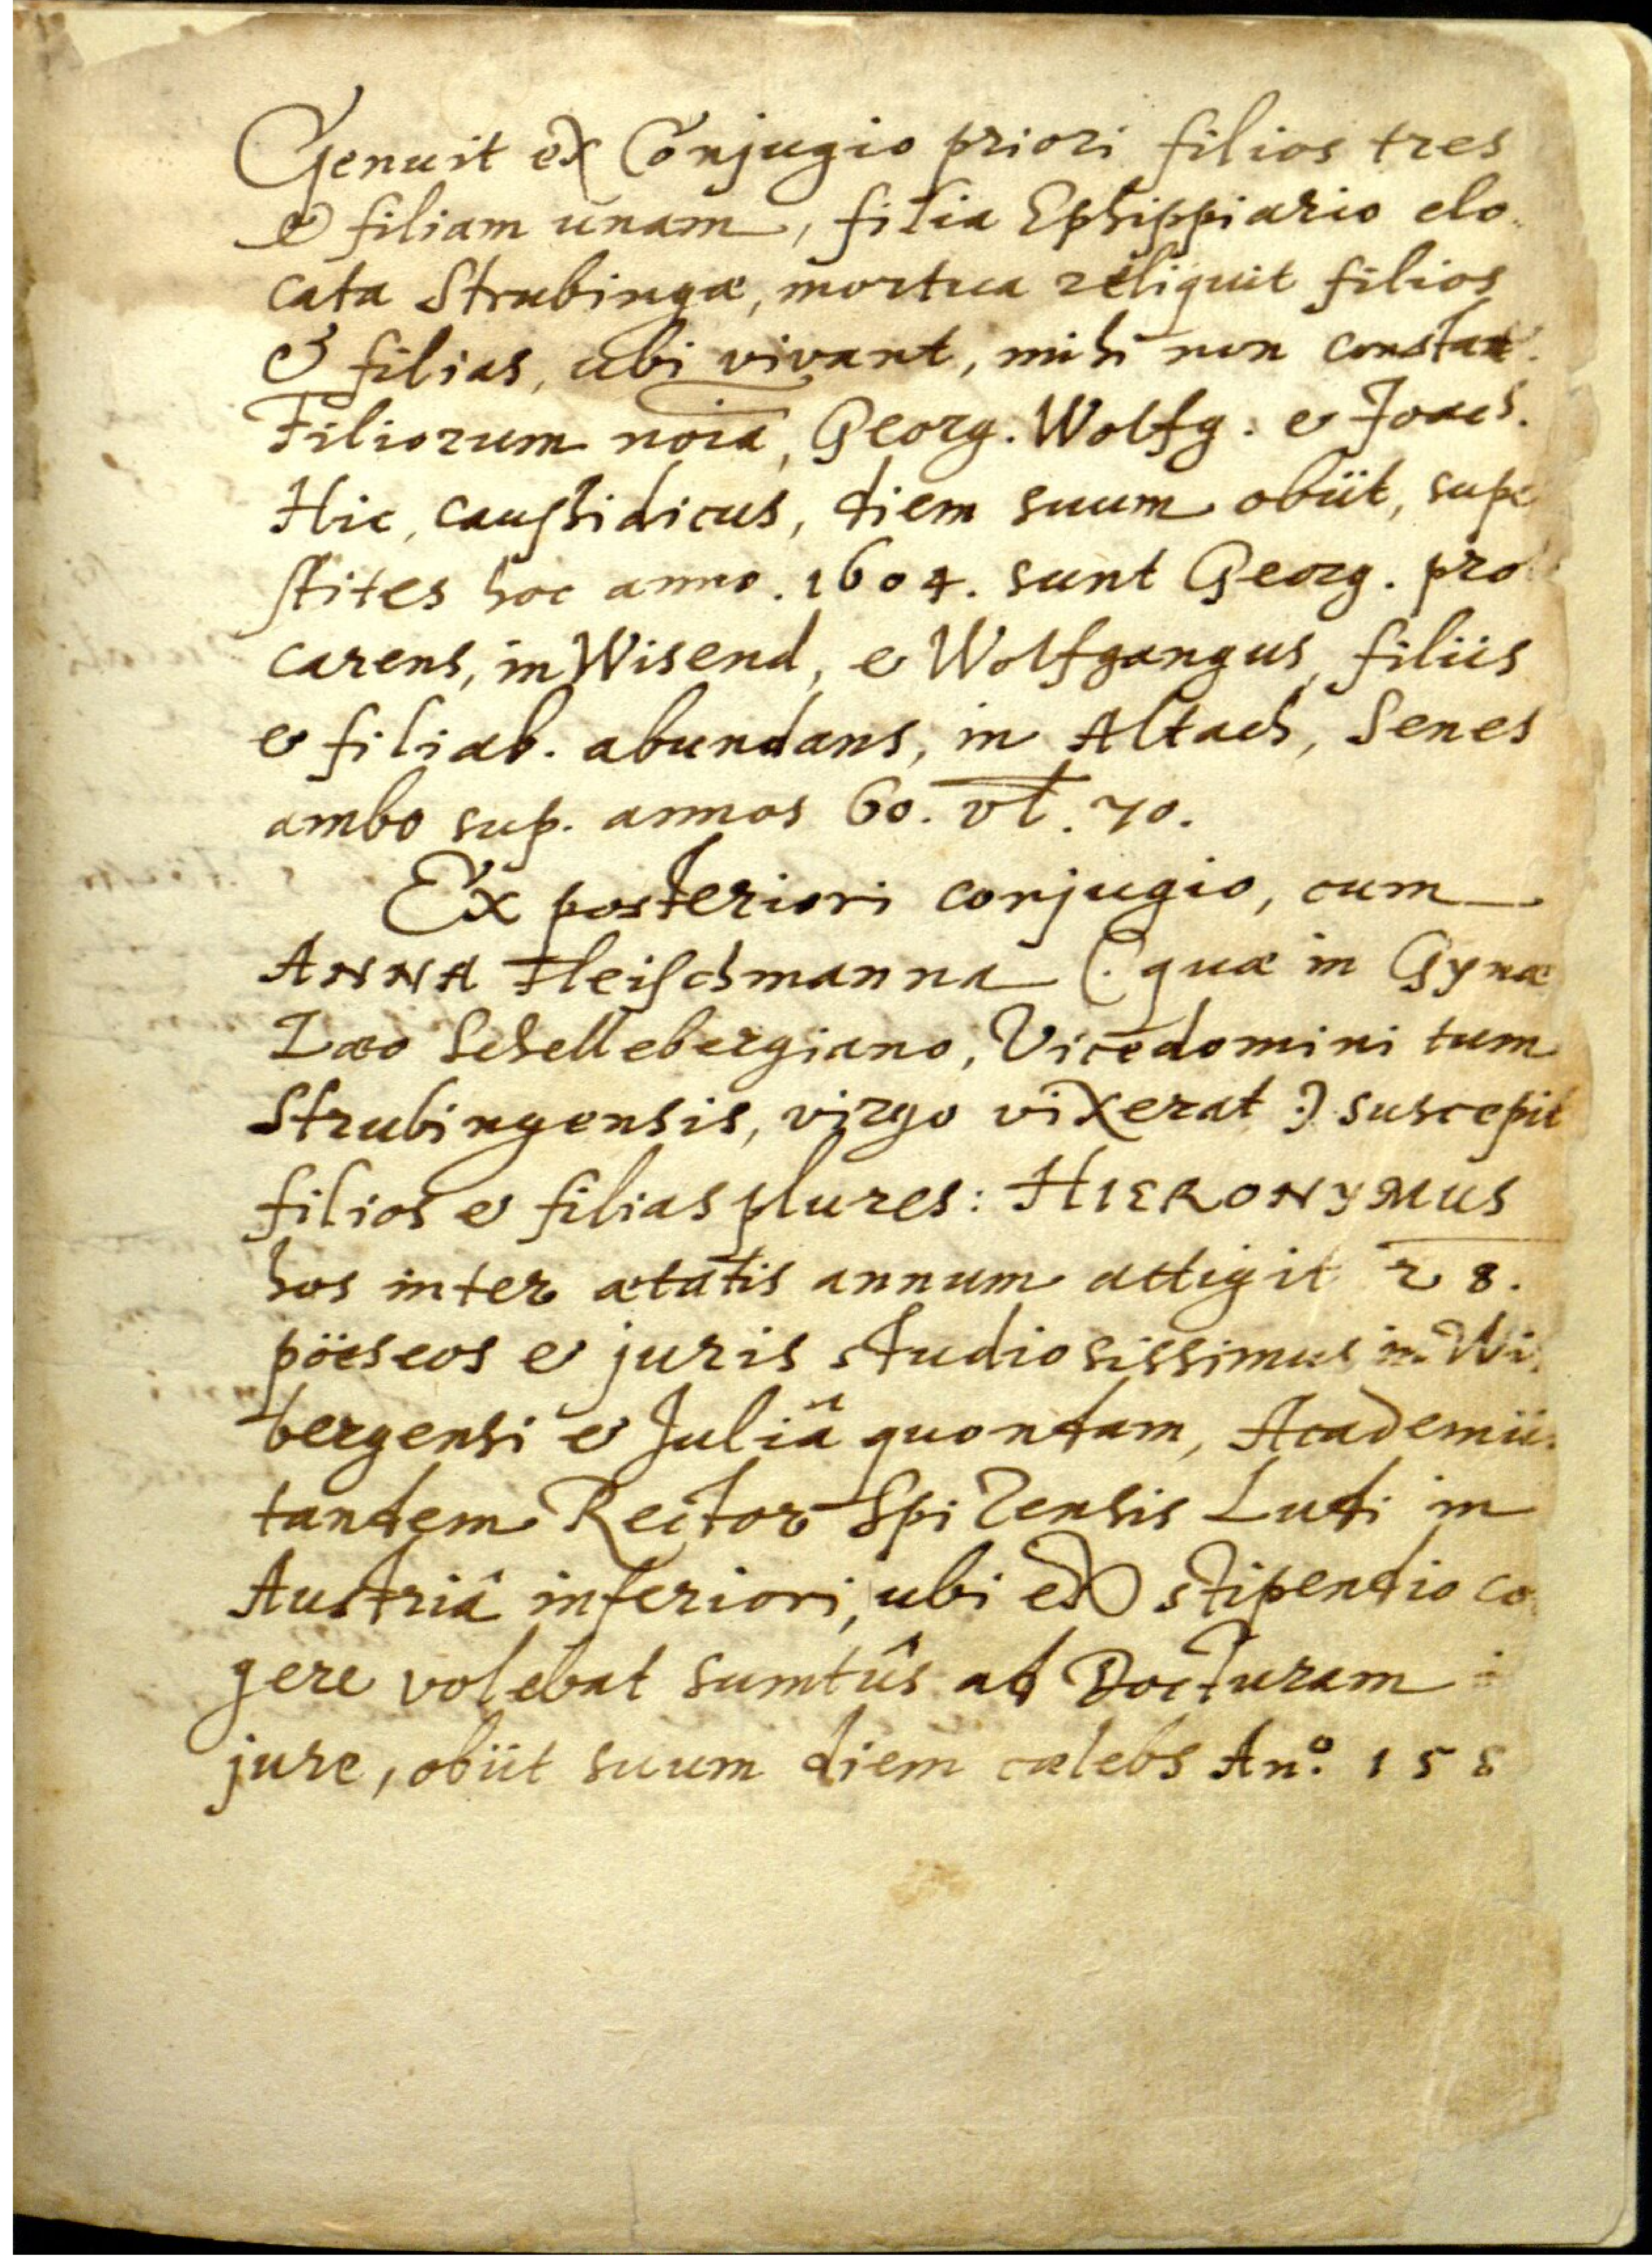 Genuit ex Conjugio priori filios tres
& filiam unam, filia Ephippiario elo-
cata Strubingæ, mortua reliquit filios
& filias, ubi vivant, mihi non constat.
Filiorum noīa, Georg. Wolfg. & Joach.
Hic, caussidicus, diem suum obiit, supe
stites hoc anno. 1604. sunt Georg. pro
carens, in Wisend, & Wolfgangus, filiis
& filiab. abundans, in Altach, Senes
ambo sup. annos 60. vl. 70.
Ex posteriori conjugio, cum
ANNA Fleischmanna (: quæ in Gynæ
Zæo Schellebergiano, Vicedomini tum
Strubingensis, virgo vixerat :) suscepit
filios & filias plures: HIERONYMUS
hos inter ætatis annum attigit 28.
pöeseos & juris studiosissimus in Wi
bergensi & Juliâ quondam, Academiis
tandem Rector Spitzensis Ludi in
Austriâ inferiori, ubi ex stipendio co
gere volebat sumtûs ad Docturam
jure, obiit suum diem cælebs An.º 158